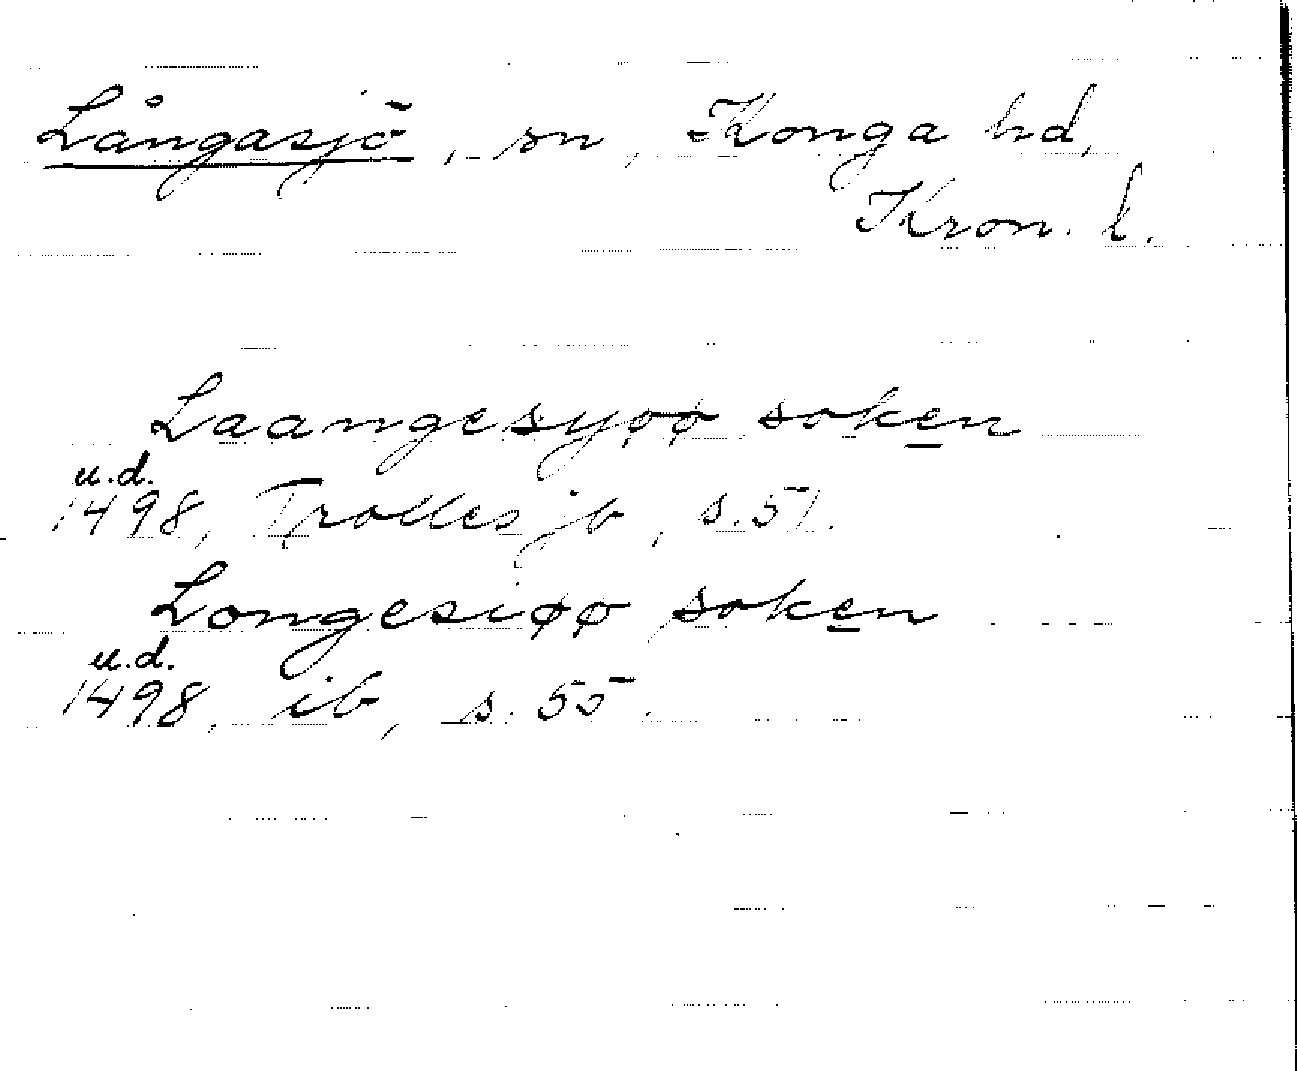 Långasjö, sn, Konga hd,
Kron. l.
Laangesyøø soken
u.d.
1498, Trolles jb, s. 51.
Longesiøø soken
u.d.
1498, ib, s. 55.